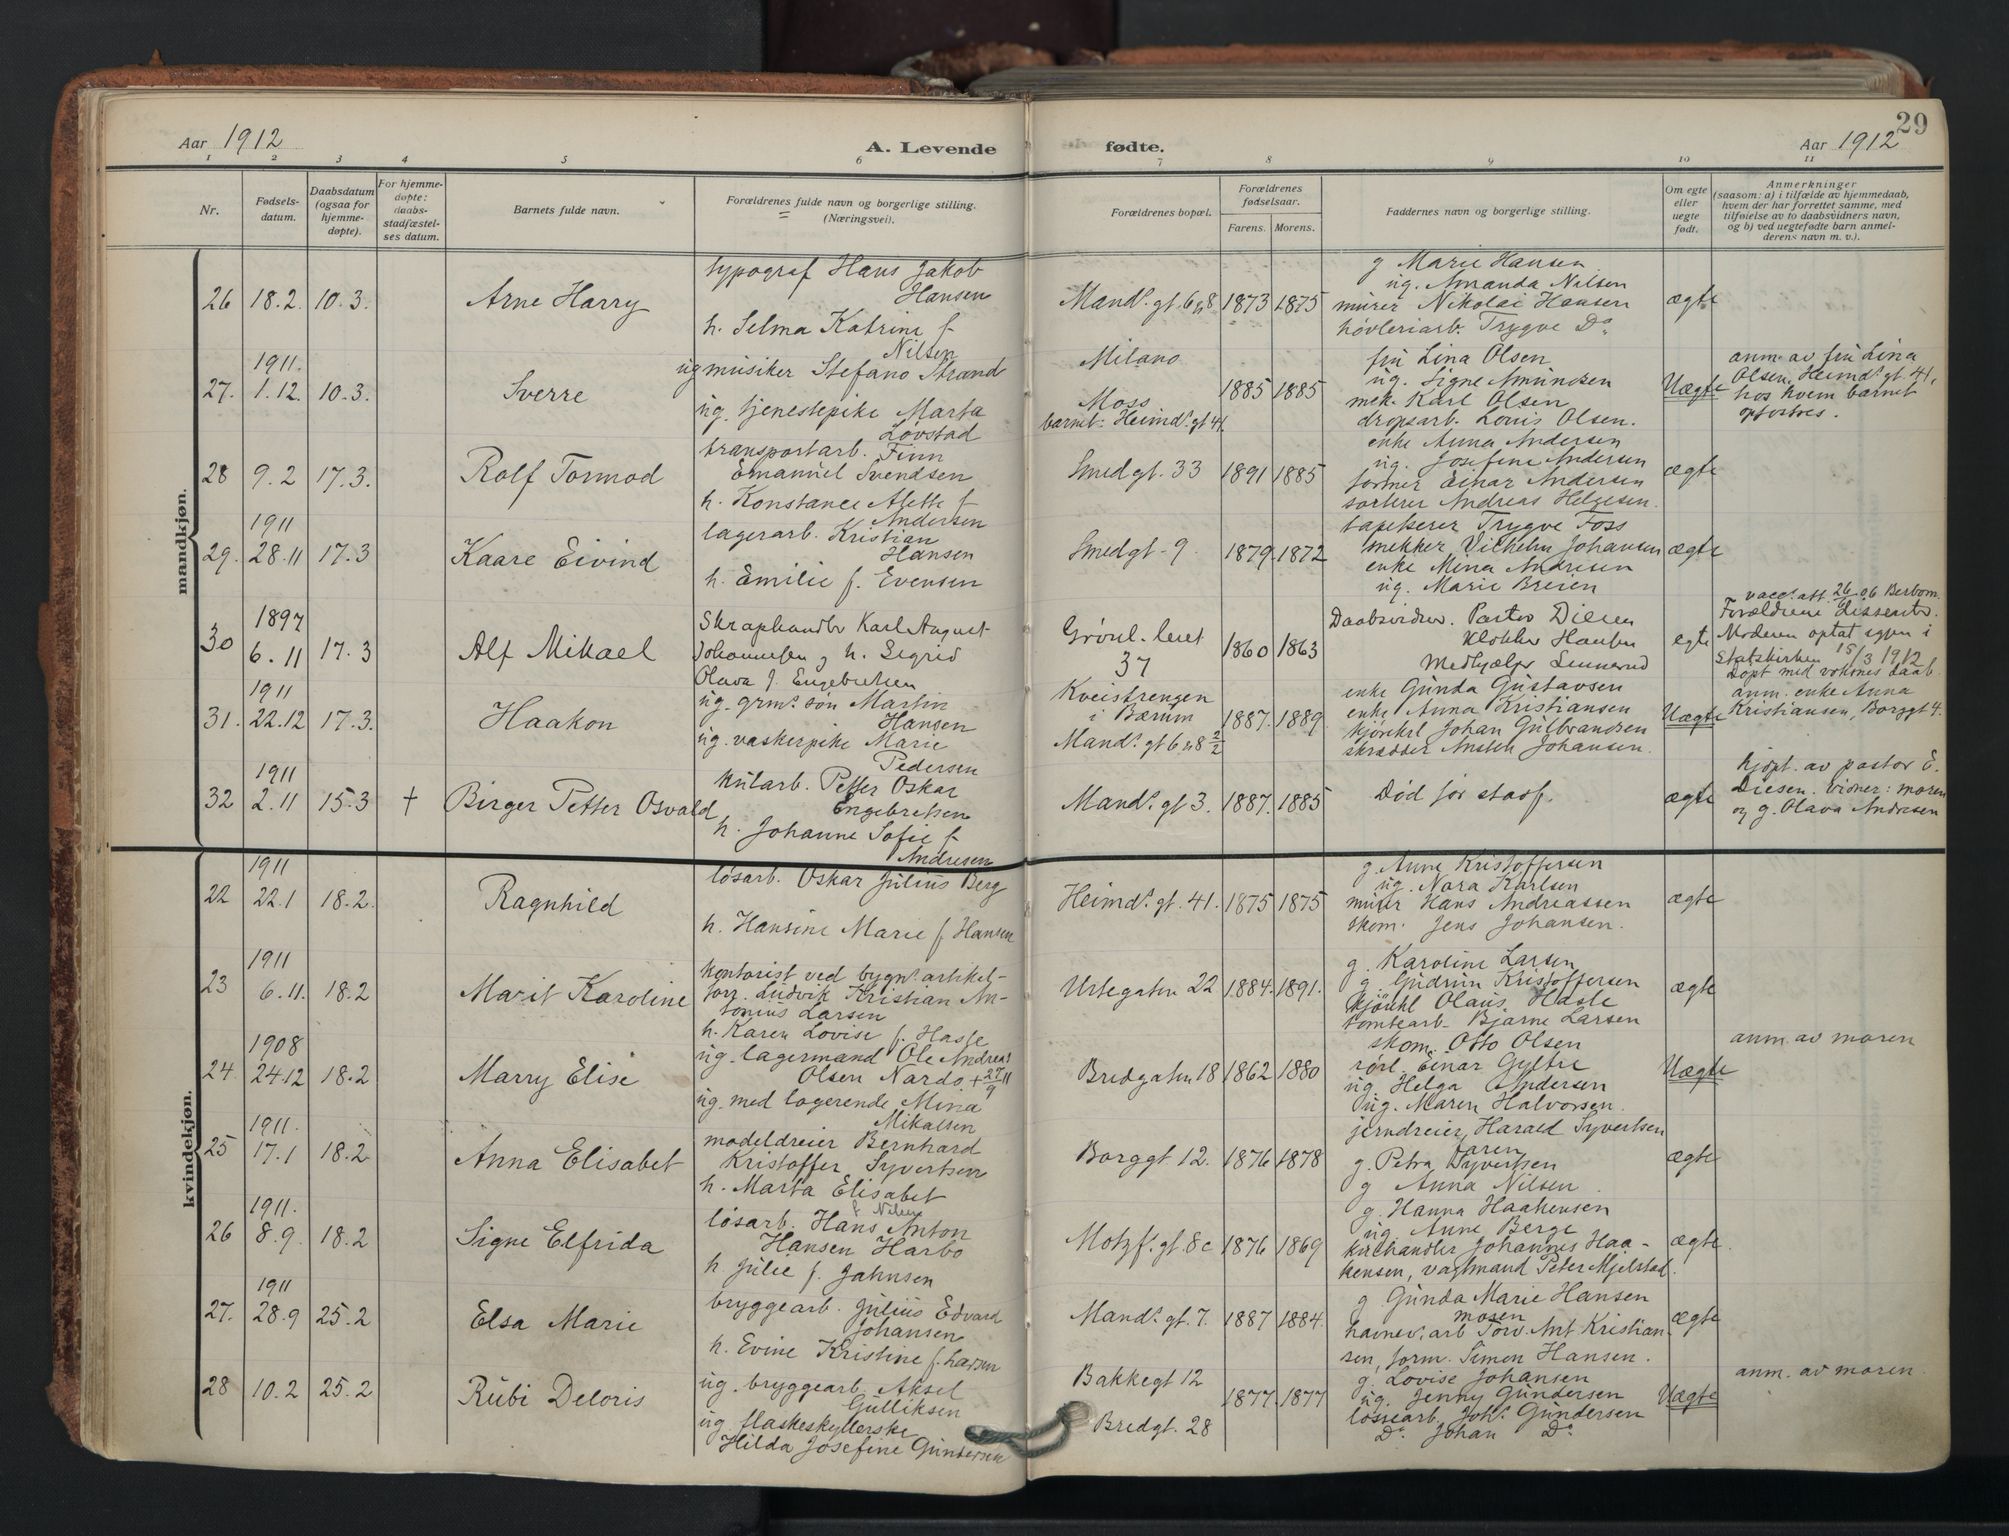 Aar 1912
A. Levende
fødte.
Aar 1912
29
1 2 3 4 5 6 7 8 9 10 11
Nr.
Fødsels-
datum.
Daabsdatum
(ogsaa for
hjemme-
døpte).
For hjemme-
døpte:
daabs-
stadfæstel-
ses datum.
Barnets fulde navn.
Forældrenes fulde navn og borgerlige stilling.
(Næringsvei).
Forældrenes bopæl.
Forældrenes
fødselsaar.
Farens. Morens.
Faddernes navn og borgerlige stilling.
Om egte
eller
uegte
født.
Anmerkninger
(saasom: a) i tilfælde av hjemmedaab,
hvem der har forrettet samme, med
tilføielse av to daabsvidners navn,
og b) ved uegtefødte barn anmel-
derens navn m. v.).
mandkjøn.
26 18.2 10.3. Arne Harry
typograf Hans Jakob
Hansen
h. Selma Katrine f.
Nilsen
Mand.s gt 6 & 8 1873 1875
g Marie Hansen
ug. Amanda Nilsen
murer Nikolai Hansen
høvleriarb. Trygve Do.
ægte
1911.
27. 1.12. 10.3. Sverre
ug musiker Stefano Strand
ug. tjenestepike Marta
Løvstad
Milano
Moss
barnet: Heimd.s gt 41.
1885 1885
fru Lina Olsen
ug. Signe Amundsen
mek. Karl Olsen
dropsarb. Louis Olsen.
Uægte
anm. av fru Lina
Olsen, Heimd.s gt 41,
hos hvem barnet
opfostres.
28 9.2 17.3. Rolf Tormod
transportarb. Finn
Emanuel Svendsen
h. Konstance Alette f.
Andersen
Smedgt. 33 1891 1885
enke Anna Andersen
ug. Josefine Andersen
former Einar Andersen
sorterer Andreas Helgesen.
ægte
1911
29. 28.11 17.3 Kaare Eivind
lagerarb. Kristian
Hansen
h. Emilie f. Evensen
Smedgt. 9 1879. 1872
tapetserer Trygve Foss
snekker Vilhelm Johansen
enke Mina Andresen
ug. Marie Breien
ægte
1897
30 6.11 17.3 Alf Mikael
Skraphandler Karl August
Johannesen og h. Sigrid
Olava f. Engebretsen
Grønl. leret
37
1860 1863
Daabsvidner. Pastor Diesen
Klokker Hauben
Medhjælper
egte
vacc. att. 26/6 06
Forældrene dissentr.
Moderen optat igjen i
Statskirken 15/3 1912
Døpt med voksnes daab.
1911
31. 22.12 17.3. Haakon
ug. grm.s søn Martin
Hansen
ug. vaskerpike Marie
Pedersen
Kveistrengen
i Bærum
Mand.s gt 6 & 8 2/2
1887. 1889
enke Gunda Gustavsen
enke Anna Kristiansen
kjørekl Johan Gulbrandsen
skrædder Johansen.
Uægte
anm. enke Anna
Kristiansen, Borggt 4.
1911
32 2.11 15.3 + Birger Petter Osvald
kularb. Petter Oskar
Engebretsen
h. Johanne Sofie f.
Andresen
Mand.s gt 3. 1887. 1885
Død før stadf.
ægte
hjdpt. av pastor E.
Diesen. vidner: moren
og g. Olava Andresen
kvindekjøn.
1911
22 22.1 18.2. Ragnhild
løsarb. Oskar Julius Berg
h. Hansine Marie f Hansen
Heimd.s gt. 41. 1875 1875
g. Anne Kristoffersen
ug. Nora Karlsen
murer Hans Andreassen
skom. Jens Johansen.
ægte
1911
23 6.11. 18.2 Marit Karoline
kontorist ved bygn.s artikel-
forr. Ludvik Kristian An-
tonius Larsen
h. Karen Lovise f. Hasle
Urtegaten 22 1884. 1891.
g. Karoline Larsen
g. Gudrun Kristoffersen
kjørekl Olaus Hasle
tomtearb. Bjarne Larsen
ægte
1908
24. 24.12 18.2 Marry Elise
ug. lagermand Ole Andreas
Olsen Nardo + 27/9 11
ug. med logerende Mina
Mikalsen
Bredgaten 18 1862 1880
skom. Otto Olsen
rørl. Einar Gyltre
ug. Helga Andersen
ug. Maren Halvorsen.
Uægte
anm. av moren
1911.
25 17.1 18.2 Anna Elisabet
modeldreier Bernhard
Kristoffer Syvertsen
h. Marta Elisabet
f. Nilsen
Borggt 12. 1876 1878
jerndreier Harald Syvertsen
g. Petra Syvertsen
g Anna Nilsen
ægte
1911.
26 8.9. 18.2 Signe Elfrida
løsarb. Hans Anton
Hansen Harbo
h. Julie f. Jahnsen
Motzf.s gt. 8c 1876 1869
g. Hanna Haakensen
ug. Anne Berge
Johannes Haa-
kensen, vagtmand Peter Mjelstad.
ægte
1911
27. 28.9 25.2 Elsa Marie
bryggearb. Julius Edvard
Johansen
h. Evine Kristine f. Larsen
Mand.s gt. 7. 1887 1884.
g Gunda Marie Hansen
havnev. arb Torv. Ant Kristian-
sen, form. Simon Hansen.
ægte
28 10.2 25.2 Rubi Deloris
ug. bryggearb. Aksel
Gulliksen
ug. flaskeskyllerske
Hilda Josefine Gundersen
Bakkegt 12
Bredgt. 28
1877. 1877
g. Lovise Johansen
ug. Jenny Gundersen
løssearb. Joh.s Gundersen
Do. Johan Do.
Uægte
anm. av moren